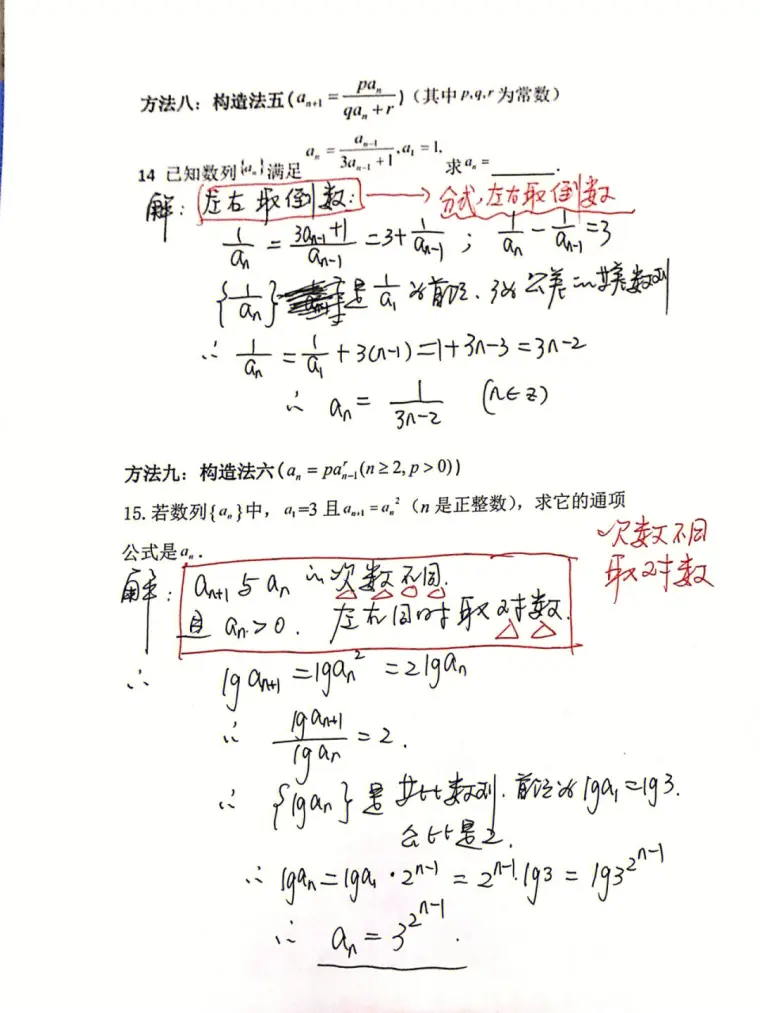 方法八：构造法五(a_{n+1} = \frac{pa_n}{qa_n + r})（其中p,q,r为常数）
14 已知数列{a_n}满足 a_n = \frac{a_{n-1}}{3a_{n-1} + 1}, a_1 = 1, 求a_n = ______.
解：左右取倒数： → 分式，左右取倒数
\frac{1}{a_n} = \frac{3a_{n-1}+1}{a_{n-1}} = 3 + \frac{1}{a_{n-1}} ； \frac{1}{a_n} - \frac{1}{a_{n-1}} = 3
{\frac{1}{a_n}} 是 \frac{1}{a_1} 为首项、3为公差的等差数列
∴ \frac{1}{a_n} = \frac{1}{a_1} + 3(n-1) = 1+3n-3 = 3n-2
∴ a_n = \frac{1}{3n-2} (n∈z)
方法九：构造法六(a_n = pa_{n-1}^r (n ≥ 2, p > 0))
15. 若数列{a_n}中，a_1=3 且a_{n+1} = a_n^2（n 是正整数），求它的通项
公式是a_n.
次数不同
取对数
解： a_{n+1} 与 a_n 的次数不同.
且 a_n>0. 左右同时取对数.
∴ lg a_{n+1} = lg a_n^2 = 2 lg a_n
∴ \frac{lg a_{n+1}}{lg a_n} = 2.
∴ {lg a_n} 是等比数列. 首项为 lg a_1 = lg3.
公比是2.
∴ lg a_n = lg a_1 · 2^{n-1} = 2^{n-1}·lg3 = lg3^{2^{n-1}}
∴ a_n = 3^{2^{n-1}}.